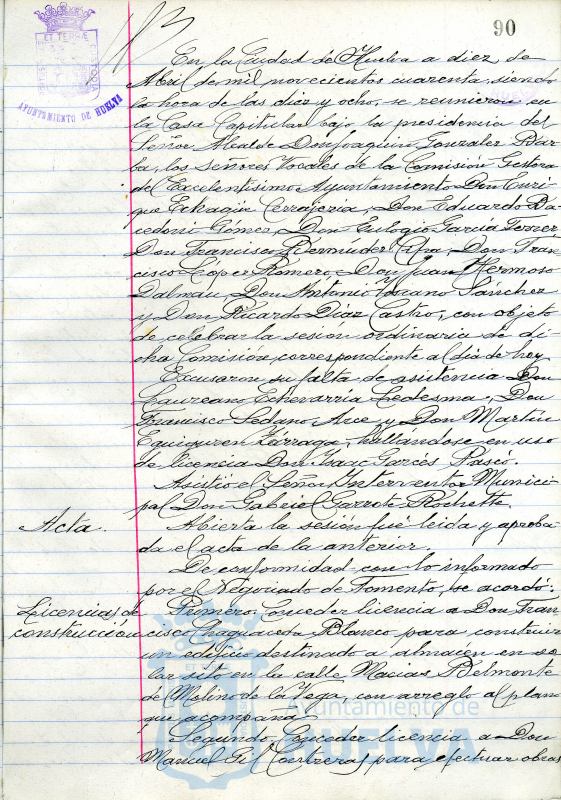 90
AYUNTAMIENTO DE HUELVA
En la Ciudad de Huelva a diez de
Abril de mil novecientos cuarenta, siendo
la hora de las diez y ocho, se reunieron en
la Casa Capitular bajo la presidencia del
Señor Alcalde Don Joaquin Gonzalez Bar
ba, los señores Vocales de la Comisión Gestora
del Excelentísimo Ayuntamiento Don Enri
que Echagüe Cerrajeria, Don Eduardo
Gomez, Don Eulogio Garcia
Don Francisco Bermúdez Don Fran
cisco Lopez Romero, Don Juan Hermoso
Dalmau, Don Antonio Sánchez
y Don Ricardo Diaz Castro, con objeto
de celebrar la sesión ordinaria de di
cha Comisión correspondiente al dia de hoy
Excusaron su falta de asistencia Don
Laureano Echevarria Ledesma, Don
Francisco Sedano Arce y Don Martín
Eguiguren Lárraga, hallandose en uso
de licencia Don Isaac Garcés
Asistió el Señor Interventor Munici
pal Don Gabriel Garrote Rochette.
Acta.
Abierta la sesión fué leida y aproba
da el acta de la anterior.
De conformidad con lo informado
por el Negociado de Fomento, se acordó:
Licencias de
construcción
Primero, Conceder licencia a Don Fran
cisco Chaguaceda Blanco para construir
un edificio destinado a almacen en so
lar sito en la calle Macias Belmonte
de Molino de la Vega, con arreglo al plano
que acompaña
Segundo, Conceder licencia a Don
Manuel Gil Contreras para efectuar obras
Ayuntamiento de
HUELVA